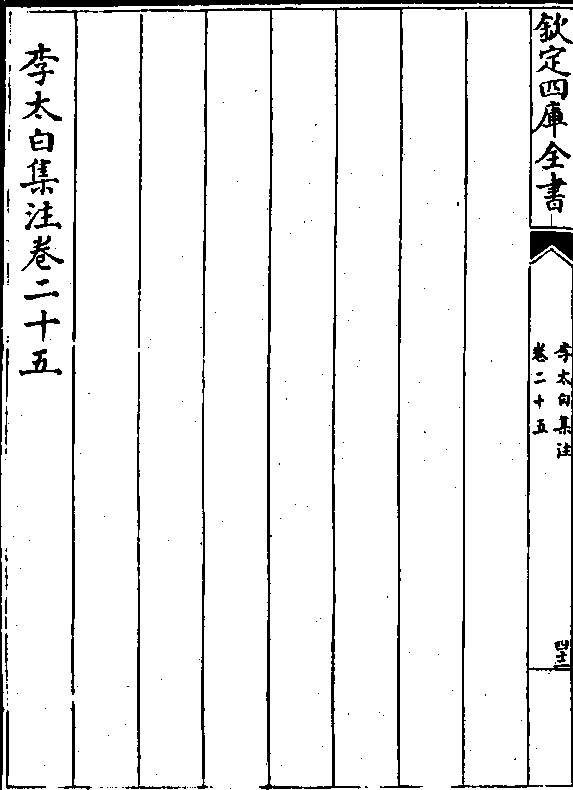 欽定四庫全書
李太白集注
卷二十五
李太白集注卷二十五